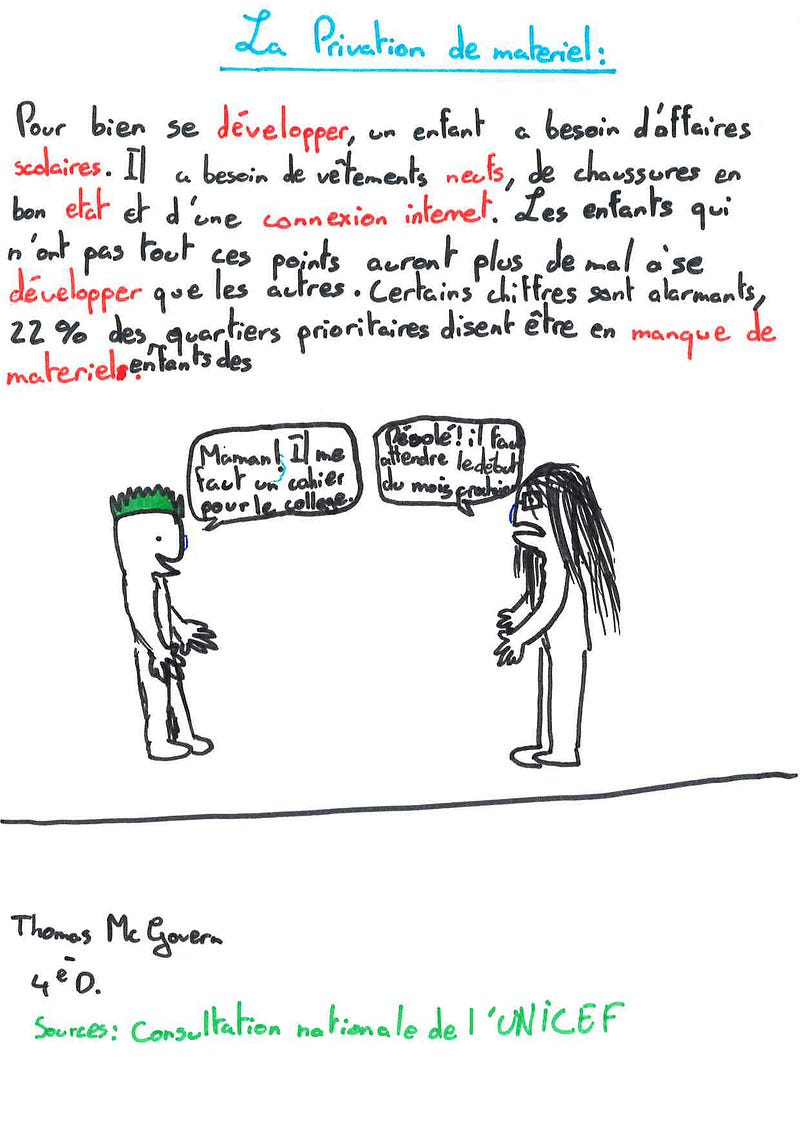 La Privation de materiel:
Pour bien se développer, un enfant a besoin d'affaires
scolaires. Il a besoin de vêtements neufs, de chaussures en
bon etat et d'une connexion internet. Les enfants qui
n'ont pas tout ces points auront plus de mal à se
développer que les autres. Certains chiffres sont alarmants,
22 % des quartiers prioritaires disent être en manque de
materiel. enfants des
Maman! Il me
faut un cahier
pour le college.
Désolé! il faut
attendre le début
du mois prochain
Thomas Mc Govern
4e D.
Sources: Consultation nationale de l'UNICEF